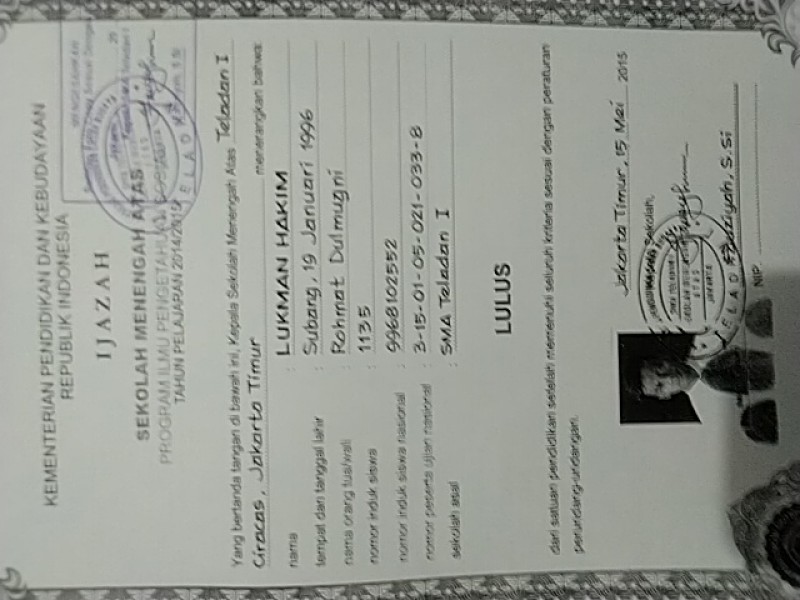 KEMENTERIAN PENDIDIKAN DAN KEBUDAYAAN
REPUBLIK INDONESIA
IJAZAH
SEKOLAH MENENGAH ATAS
PROGRAM ILMU PENGETAHUAN SOSIAL
TAHUN PELAJARAN 2014/2015
Yang bertanda tangan di bawah ini, Kepala Sekolah Menengah Atas Teladan I
Ciracas, Jakarta Timur menerangkan bahwa:
nama : LUKMAN HAKIM
tempat dan tanggal lahir : Subang, 19 Januari 1996
nama orang tua/wali : Rohmat Dulmugni
nomor induk siswa : 1135
nomor induk siswa nasional : 9968102552
nomor peserta ujian nasional : 3-15-01-05-021-033-8
sekolah asal : SMA Teladan I
LULUS
dari satuan pendidikan setelah memenuhi seluruh kriteria sesuai dengan peraturan
perundang-undangan.
Jakarta Timur, 15 Mei 2015
Kepala Sekolah,
S.Si
NIP.